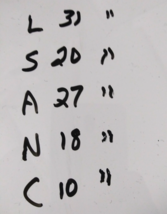 L 31 "
S 20 "
A 27 "
N 18 "
C 10 "